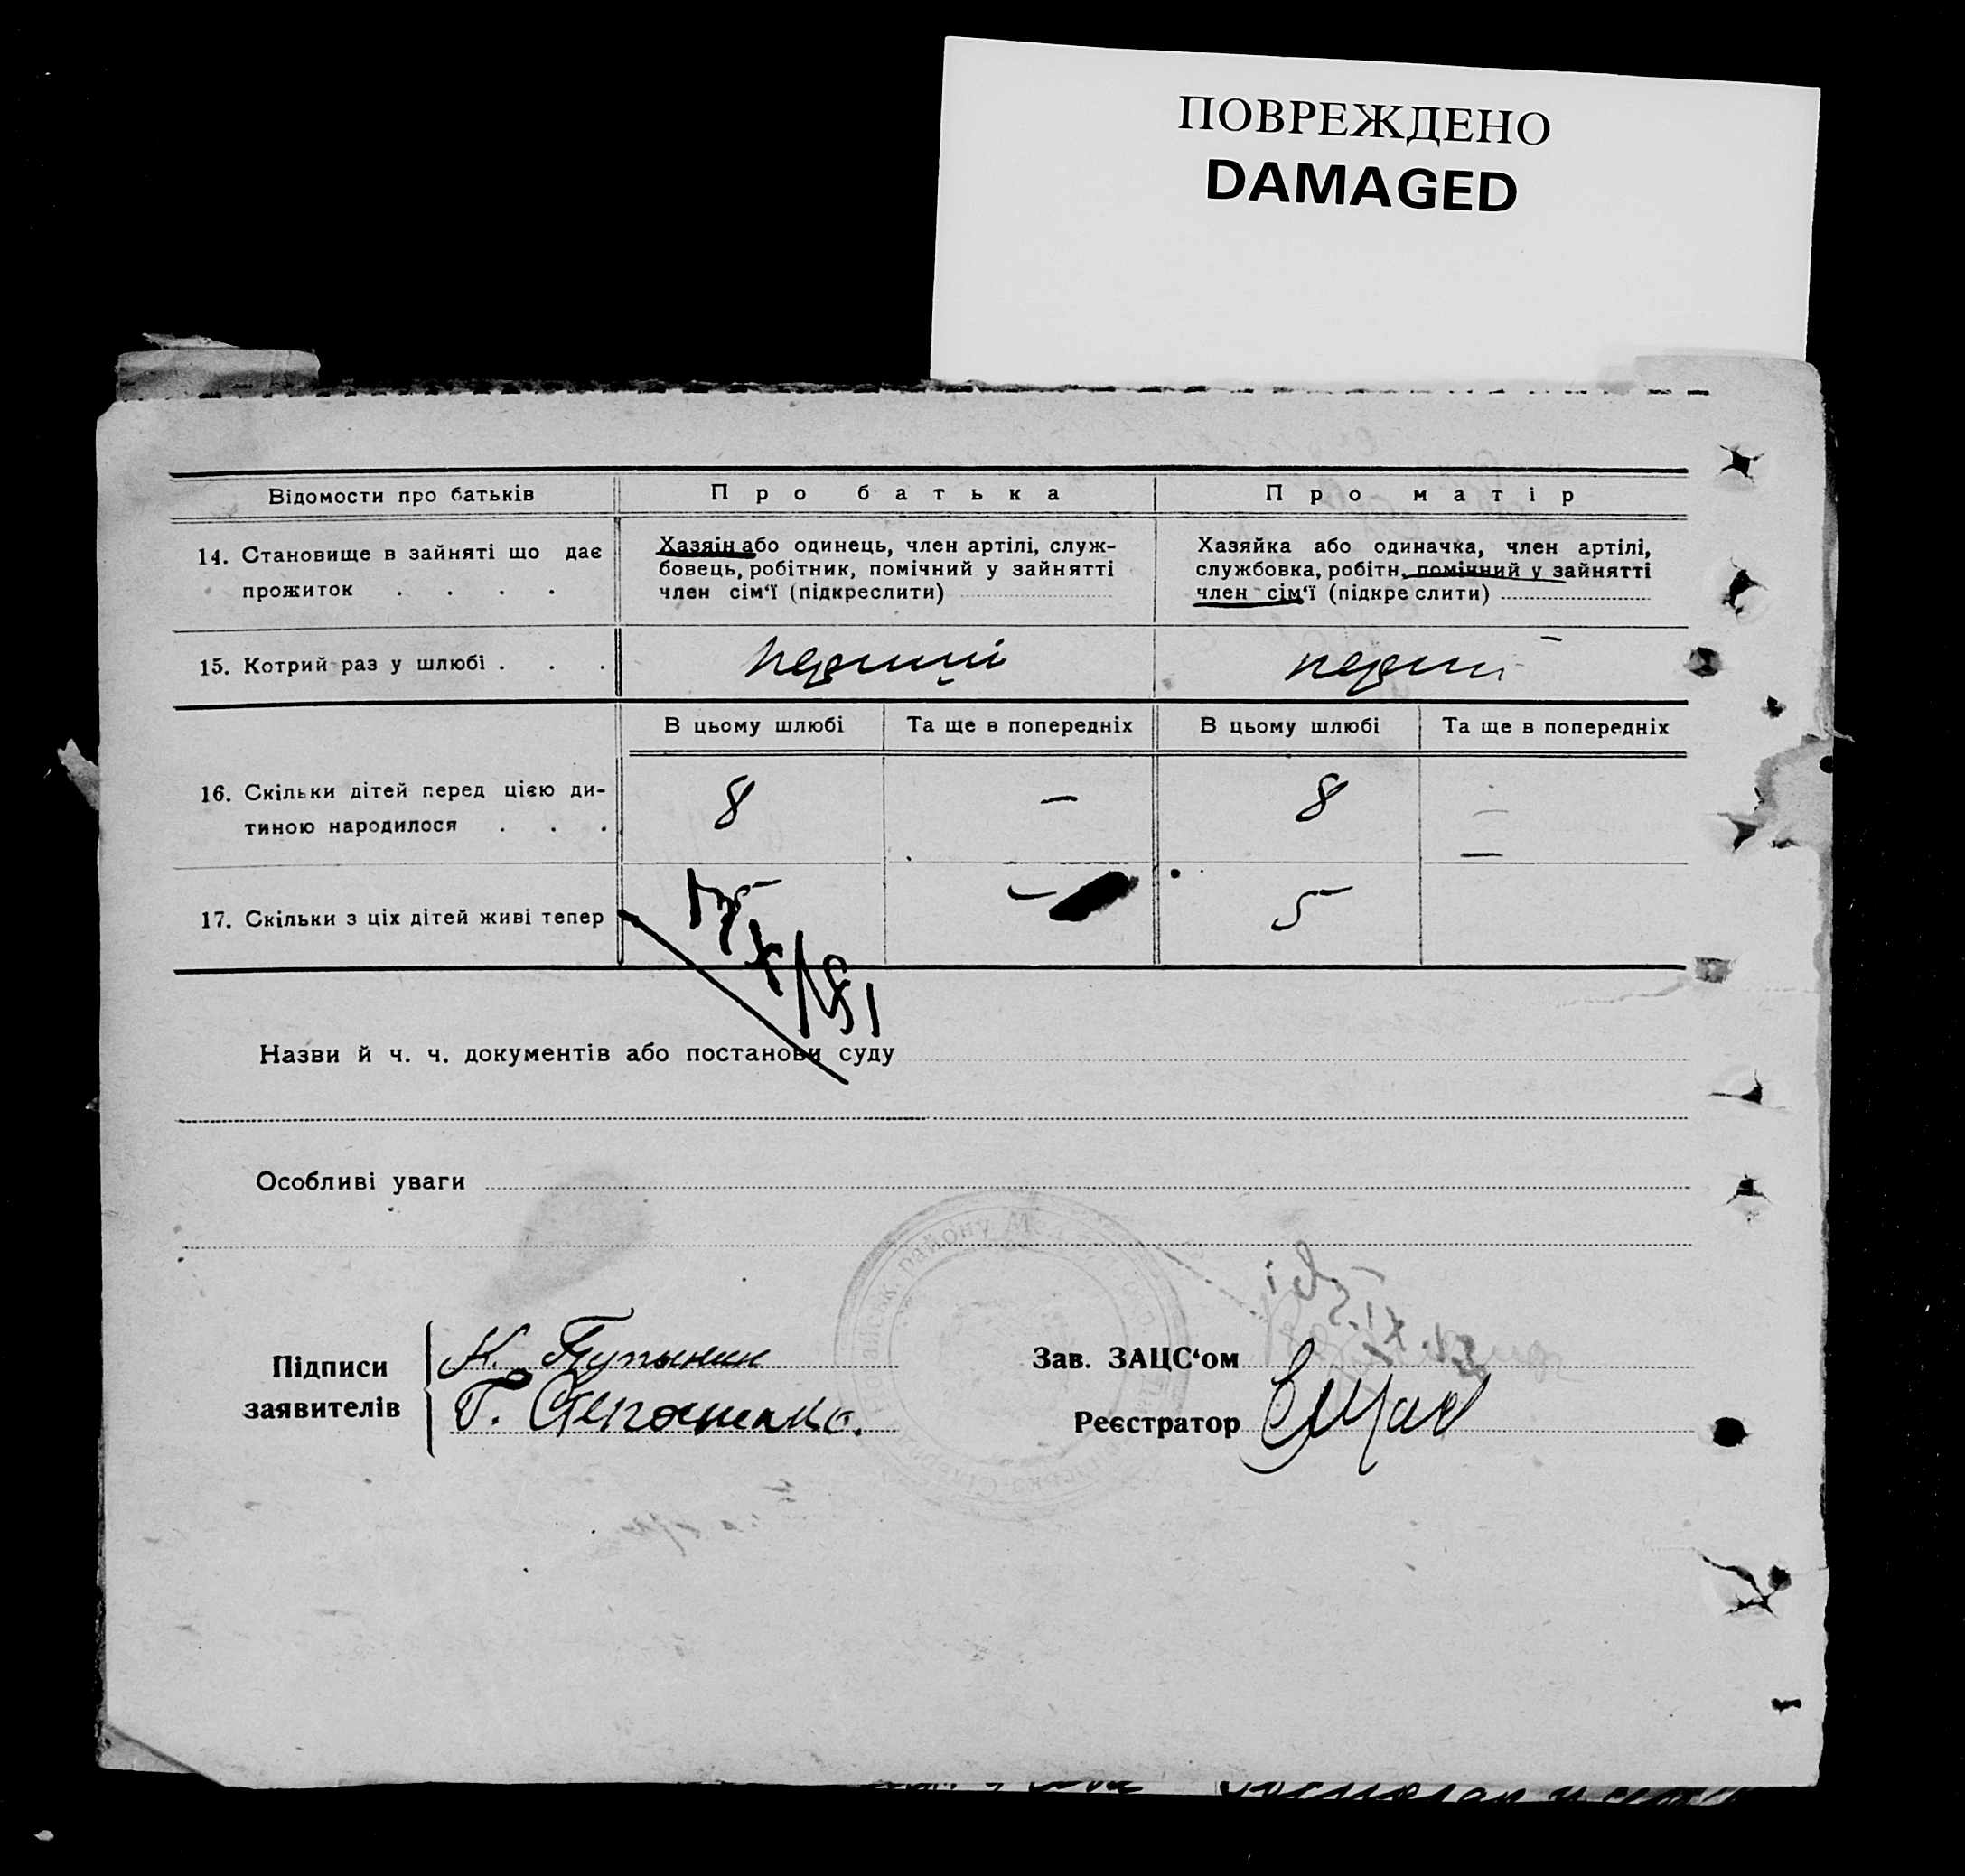 ПОВРЕЖДЕНО
DAMAGED
Відомости про батьків
Про батька
Про матір
14. Становище в зайняті що дає
прожиток . . . .
Хазяін або одинець, член артілі, служ-
бовець, робітник, помічний у зайнятті
член сім'ї (підкреслити)
Хазяйка або одиначка, член артілі,
службовка, робітн. помічний у зайнятті
член сім'ї (підкреслити)
15. Котрий раз у шлюбі . . .
перший
перший
В цьому шлюбі
Та ще в попередніх
В цьому шлюбі
Та ще в попередніх
16. Скільки дітей перед цією ди-
тиною народилося . . .
8
—
8
—
17. Скільки з ціх дітей живі тепер
5
Назви й ч. ч. документів або постанови суду
Особливі уваги
Підписи
заявителів
К.
Г. Степаненко.
Зав. ЗАЦС'ом
Реєстратор
району